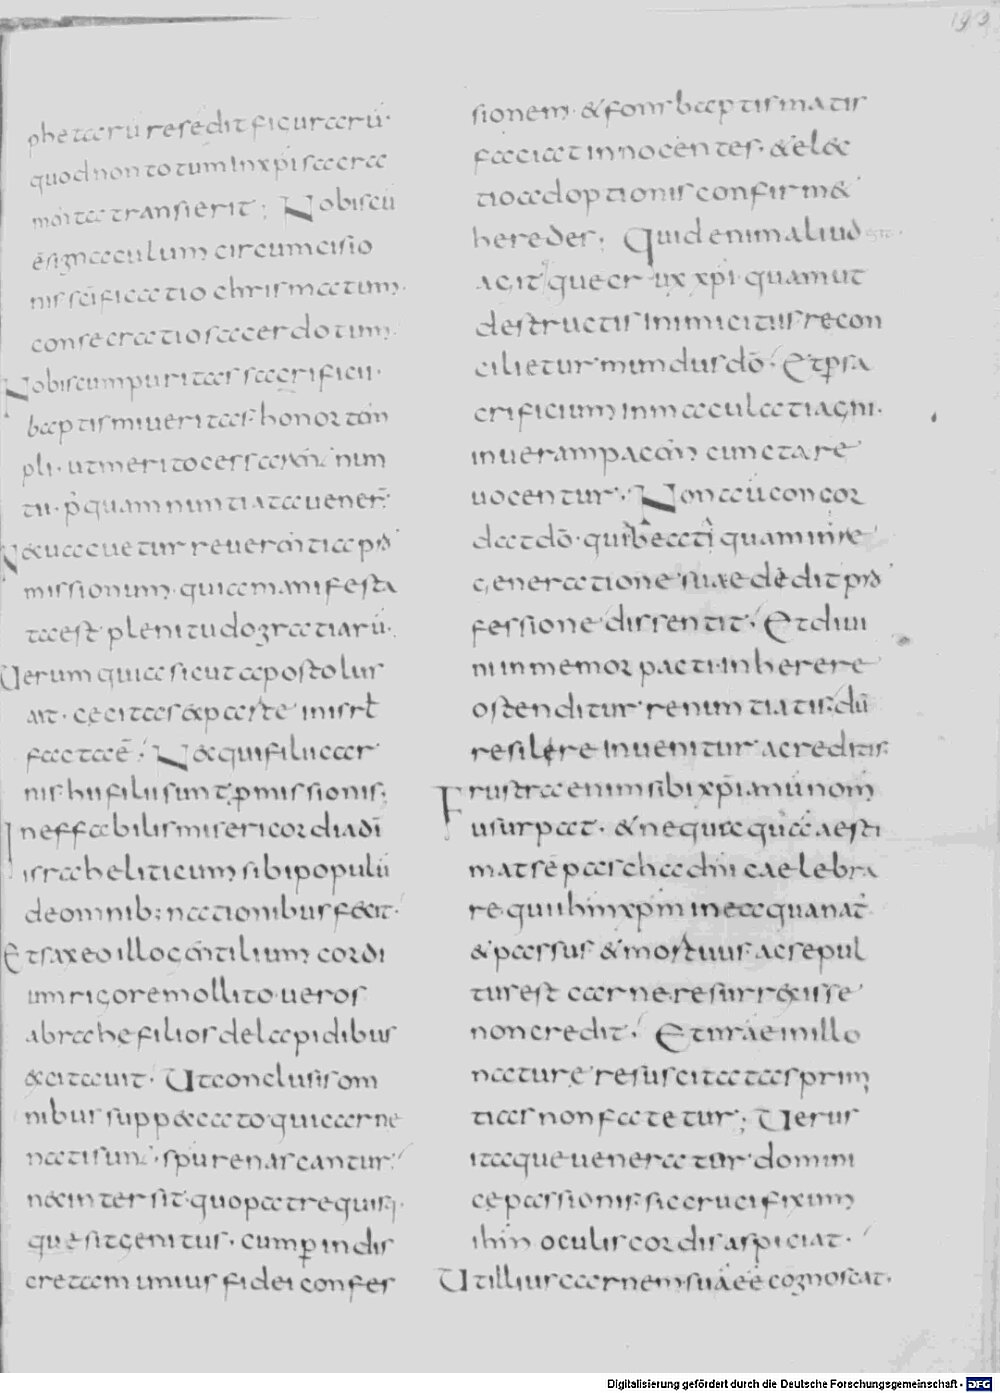 193
phetarū resedit figurarū·
quod non totum in xp̄i sacra
m̄ta transierit; Nobiscū
ē signaculum circumcisio
nis sc̄ificatio chrismatum·
consecratio sacerdotum·
Nobiscum puritas sacrificii·
baptismi ueritas· honor tem
pli· ut merito cessarent nun
tii· p̄quam nuntiata uener̄·
Nec uacuetur reuerentia pro
missionum· quia manifesta
ta est plenitudo gratiarū·
Uerum quia sicut apostolus
ait· cecitas ex parte in isrl
facta ē· Nec qui filii car
nis· hii filii sunt p̱missionis;
Ineffabilis misericordia dī
israheliticum sibi populū
de omnib; nationibus fecit·
Et saxeo illo gentilium cordi
um rigore mollito ueros
abrahe filios de lapidibus
excitauit· Ut conclusis om
nibus sub peccato qui carne
nati sunt· spū renascantur·
nec intersit quo patre quisq·
que sit genitus· cum p̱ indis
cretam unius fidei confes
sionem· & fons baptismatis
faciat innocentes· & elec
tio adoptionis confirmet
heredes· Quid enim aliud
acit que crux xp̄i· quam ut
destructis inimicitiis recon
cilietur mundus dō· Et p̱ sa
crificium inmaculati agni·
in ueram pacem cuncta re
uocentur· Non aū concor
dat dō· qui beati quam in re
generatione suae dedit pro
fessione dissentit· Et diui
ni inmemor pacti· inherere
ostenditur renuntiatis· dū
resilere inuenitur a creditis·
Frustra enim sibi xp̄ianū nom̄
usurpat· & nequaquā aesti
mat sē pascha dn̄i caelebra
re· qui ih̄m xp̄m in ea qua nat̄
& passus & mortuus ac sepul
tur est carne· resurrexisse
non credit· Et nr̄ae in illo
nature resuscitatas primi
tias non fatetur; Uerus
itaque uenerator domini
ce passionis· sic crucifixum
ih̄m oculis cordis aspiciat·
Ut illius carnem suā eē cognoscat·
Digitalisierung gefördert durch die Deutsche Forschungsgemeinschaft - DFG